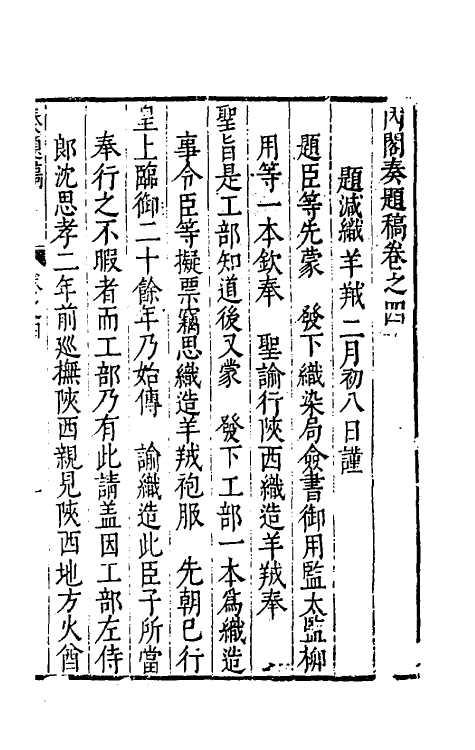 內閣奏題稿卷之四
題減織羊羢二月初八日謹
題臣等先蒙　發下織染局僉書御用監太監柳
用等一本欽奉　聖諭行陝西織造羊羢奉
聖旨是工部知道後又蒙　發下工部一本爲織造
事令臣等擬票竊思織造羊羢袍服　先朝已行
皇上臨御二十餘年乃始傳　諭織造此臣子所當
奉行之不暇者而工部乃有此請盖因工部左侍
郎沈思孝二年前廵撫陝西親見陝西地方火酋
奏題稿